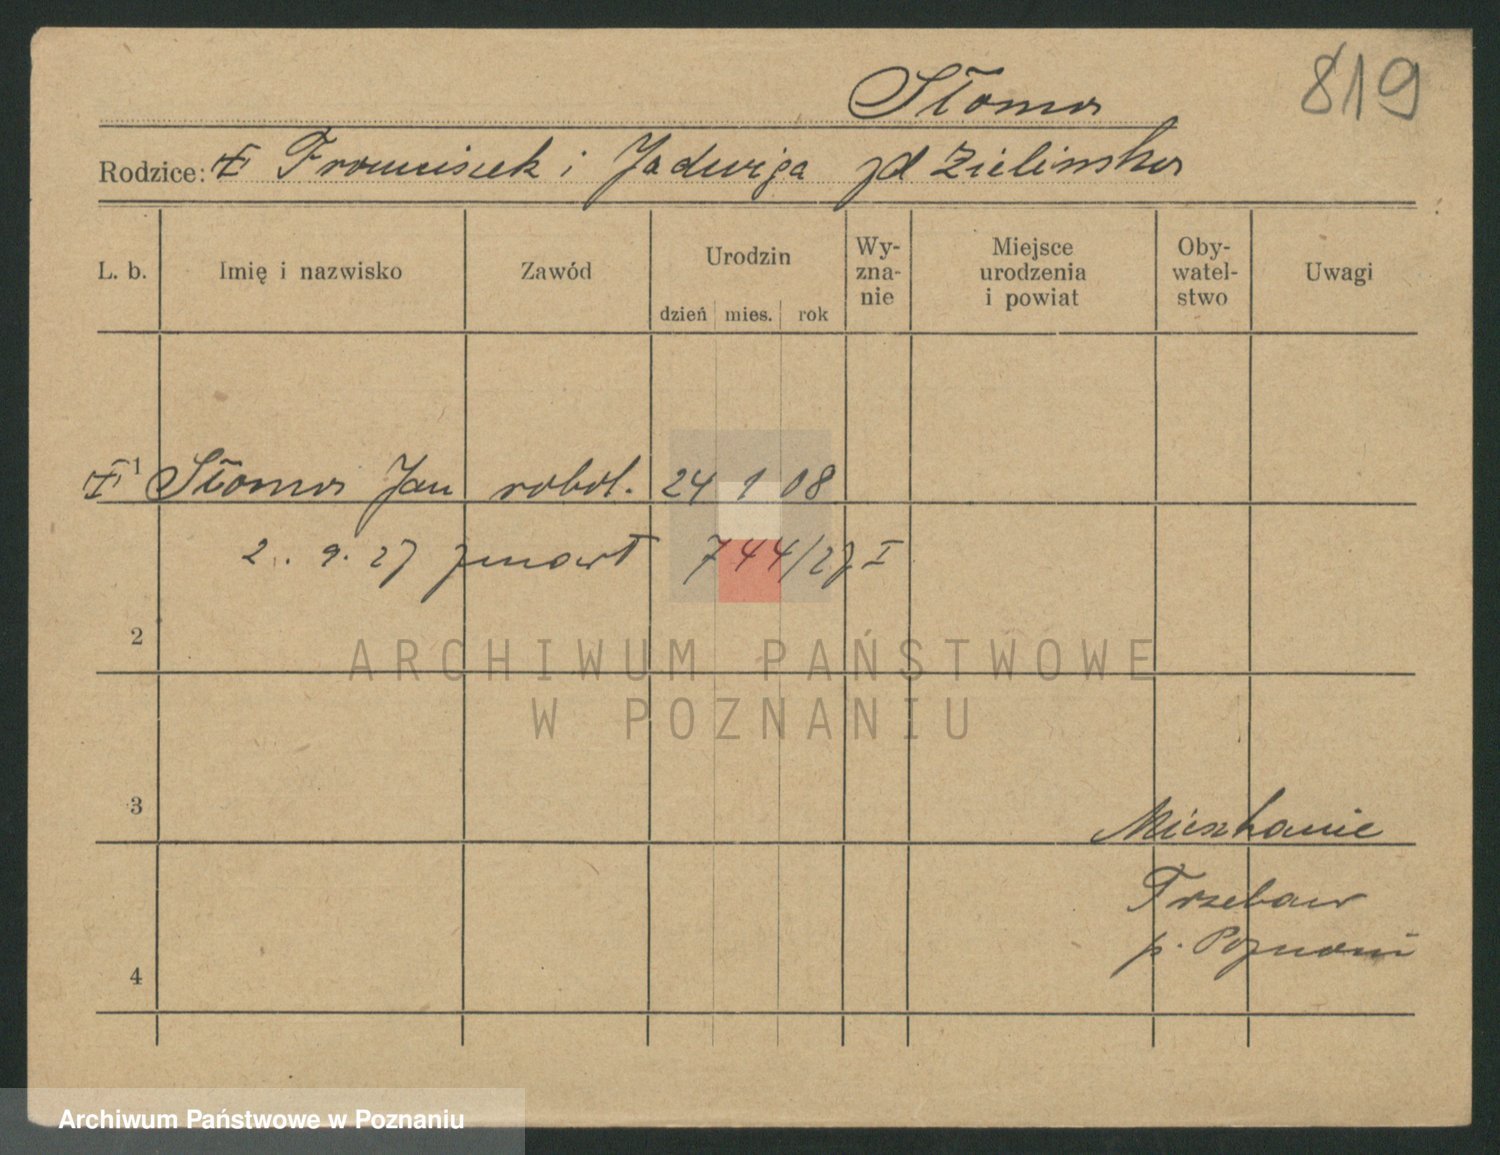 819
Słoma
Rodzice: Franciszek i Jadwiga zd Zielińska
L. b. Imię i nazwisko Zawód Urodzin dzień mies. rok Wy-zna-nie Miejsce urodzenia i powiat Oby-watel-stwo Uwagi
1 Słoma Jan robot. 24 1 08
2. 9. 27 zmarł 744/27 I
2
ARCHIWUM PAŃSTWOWE
W POZNANIU
3
Mieszkanie
Trzebaw
p. Poznań
4
Archiwum Państwowe w Poznaniu